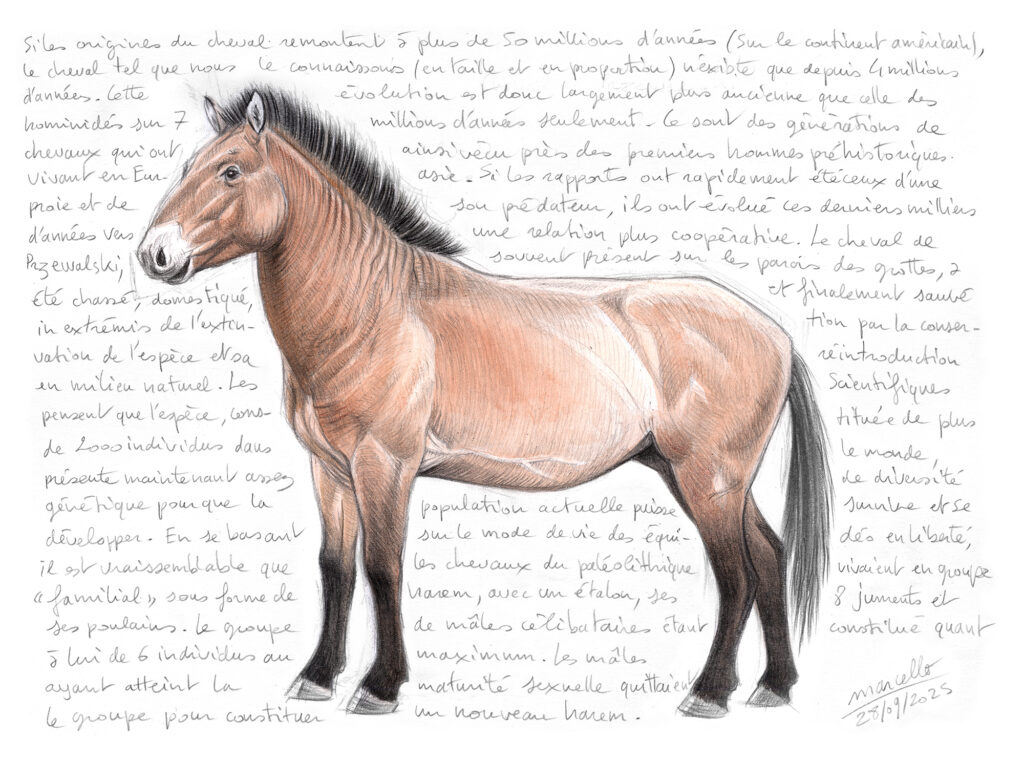 Si les origines du cheval remontent à plus de 50 millions d'années (sur le continent américain),
le cheval tel que nous le connaissons (en taille et en proportion) n'existe que depuis 4 millions
d'années. Cette évolution est donc largement plus ancienne que celle des
hominidés sur 7 millions d'années seulement. Ce sont des générations de
chevaux qui ont ainsi vécu près des premiers hommes préhistoriques.
vivant en Eur- asie. Si les rapports ont rapidement été ceux d'une
proie et de son prédateur, ils ont évolué ces derniers milliers
d'années vers une relation plus coopérative. Le cheval de
Przewalski, souvent présent sur les parois des grottes, a
été chassé, domestiqué, et finalement sauvé
in extrémis de l'extin- tion par la conser-
vation de l'espèce et sa réintroduction
en milieu naturel. Les Scientifiques
pensent que l'espèce, cons- tituée de plus
de 2000 individus dans le monde,
présente maintenant assez de diversité
génétique pour que la population actuelle puisse survivre et se
développer. En se basant sur le mode de vie des équi- dés en liberté,
il est vraissemblable que les chevaux du paléolithique vivaient en groupe
« familial » sous forme de harem, avec un étalon, ses 8 juments et
ses poulains. Le groupe de mâles célibataires étant constitué quant
à lui de 6 individus au maximum. Les mâles
ayant atteint la maturité sexuelle quittaient
le groupe pour constituer un nouveau harem.
marcello
28/09/2025